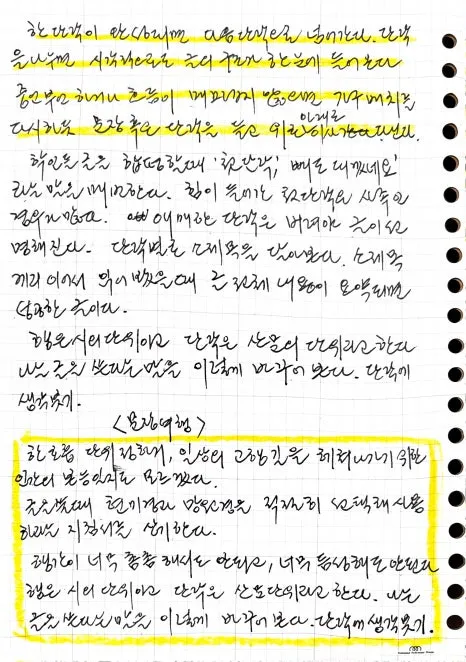 한 단락이 완성되면 다음 단락으로 넘어간다. 단락
을 나누면 시각적으로도 글의 구조가 한눈에 들어온다
중언부언하거나 흐름이 매끄럽지 않으면 가구 배치를
다시하듯 문장 혹은 단락을 들고 위로 아래로
학인들 글을 합평할 때 '첫 단락, 빼도 되겠네요'
라는 말을 매번 한다. 힘이 들어간 첫 단락은 사족인
경우가 많다. 애매한 단락은 버려야 글이 선
명해진다. 단락별로 소제목을 달아본다. 소제목
끼리 이어서 읽어 봤을 때 글 전체 내용이 요약되면
훌륭한 글이다.
행은 시의 단위이고 단락은 산문의 단위라고 한다
나는 글을 쓰다는 말을 이렇게 바꾸어 본다. 단락에
생각 붓기.
<문장여행>
한 호흡 단위 일상의 고행길을 헤쳐나가기 위한
인간의 모르겠다.
글을 쓸때 현미경과 망원경을 적절히 선택해 사용
하라는 지침서를 상기한다.
행간이 너무 촘촘해서도 안되고, 너무 듬성해도 안된다
행은 시의 단위이고 단락은 산문 단위라고 한다. 나는
글을 쓰다는 말을 이렇게 바꾸어 본다. 단락에 생각 붓기.